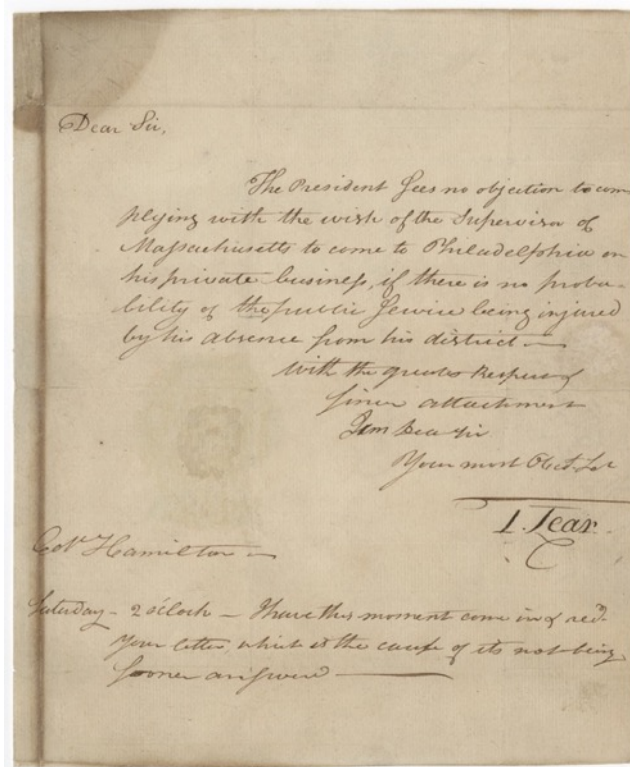 Dear Sir,
The President sees no objection to com
plying with the wish of the Supervisor of
Massachusetts to come to Philadelphia on
his private business, if there is no proba-
bility of the public Service being injured
by his absence from his district —
With the greatest Respect &
sincere attachment
I am Dear Sir
Your most Obedt Sert
T. Lear.
Colo. Hamilton —
Saturday - 2 o'Clock — I have this moment come in & recd.
your letter, which is the cause of its not being
sooner answered —